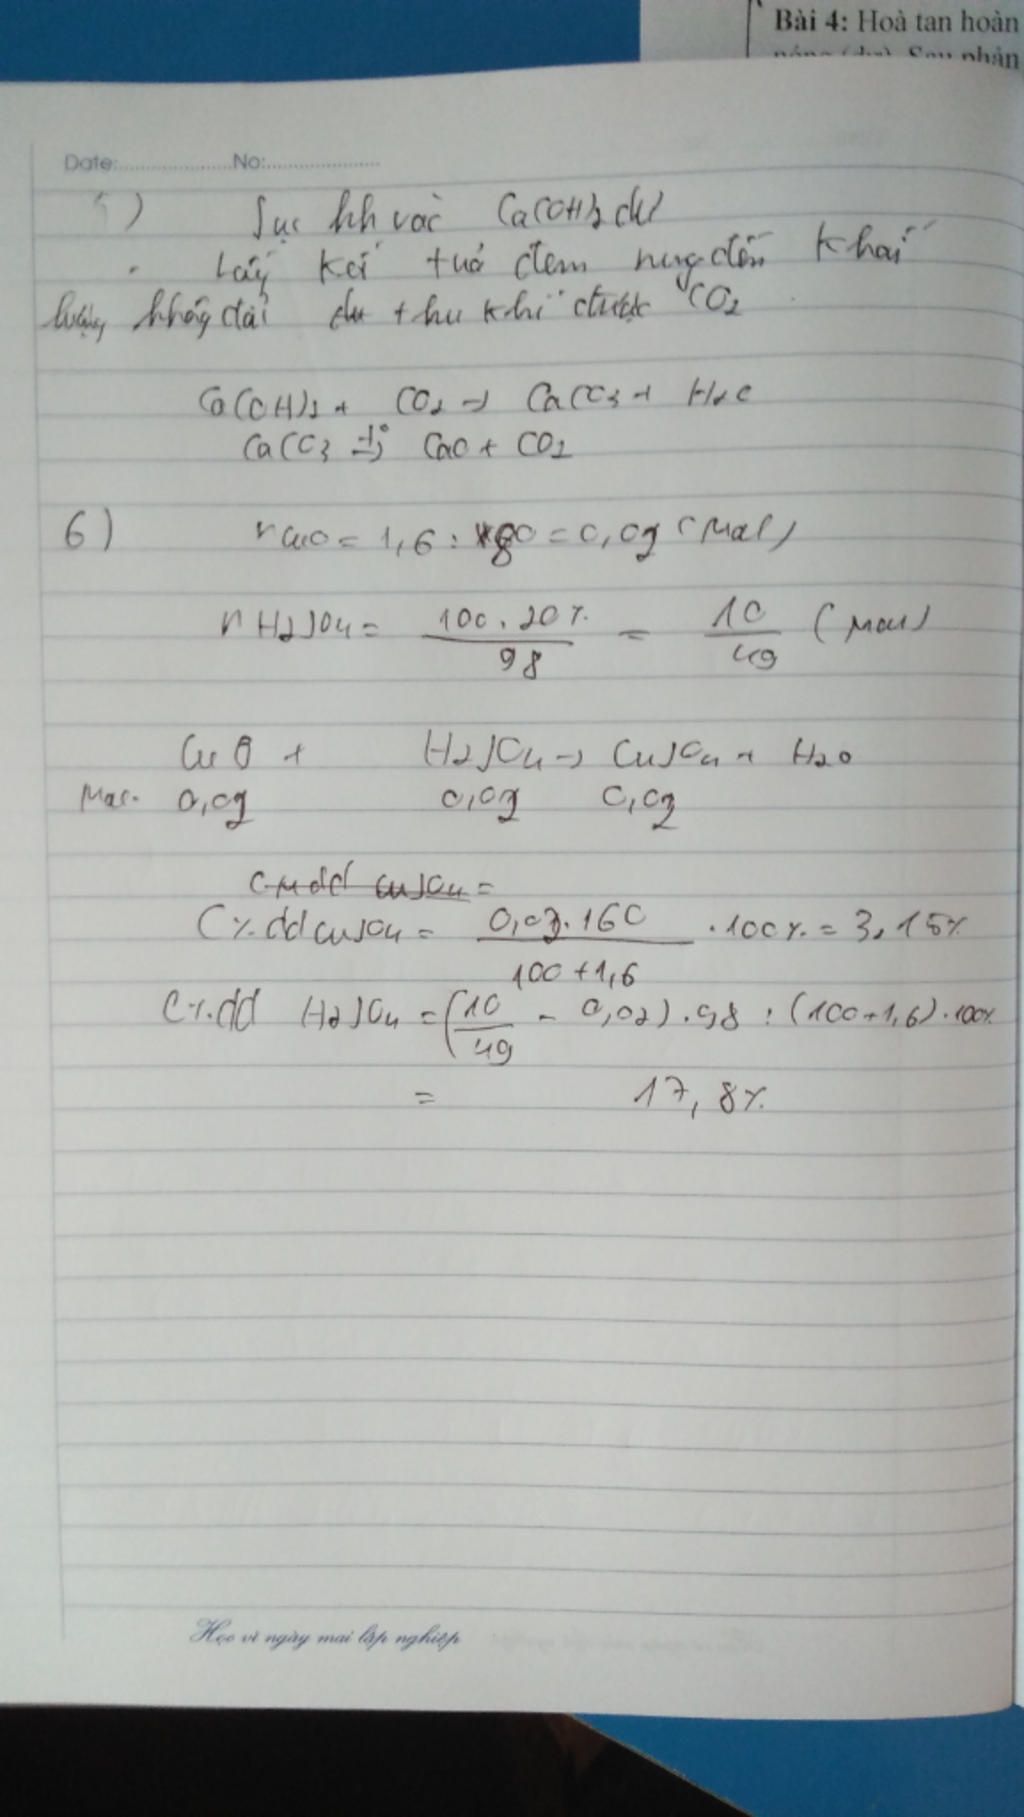 Bài 4: Hoà tan hoàn
Date:....................No:....................
5) Sục hh vào Ca(OH)2 dư
Lấy kết tủa đem nung đến khối
lượng không đổi thu khí được CO2
Ca(OH)2 + CO2 → CaCO3 + H2O
CaCO3 t°→ CaO + CO2
6) nCuO = 1,6 : 80 = 0,02 (mol)
nH2SO4 = 100.20% / 98 = 10/49 (mol)
CuO + H2SO4 → CuSO4 + H2O
Mol. 0,02 0,02 0,02
CM dd CuSO4 =
C% dd CuSO4 = 0,02.160 / 100+1,6 .100% = 3,15%
C% dd H2SO4 = (10/49 - 0,02).98 : (100+1,6).100%
= 17,8%
Học vì ngày mai lập nghiệp